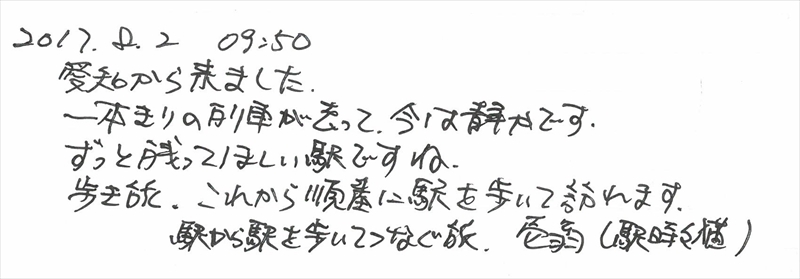 2017.8.2 09:50
愛知から来ました.
一本きりの列車が去って、今は静かです.
ずっと残ってほしい駅ですね.
歩き旅、これから順番に駅を歩いて訪れます.
駅から駅を歩いてつなぐ旅. (駅時々猫)